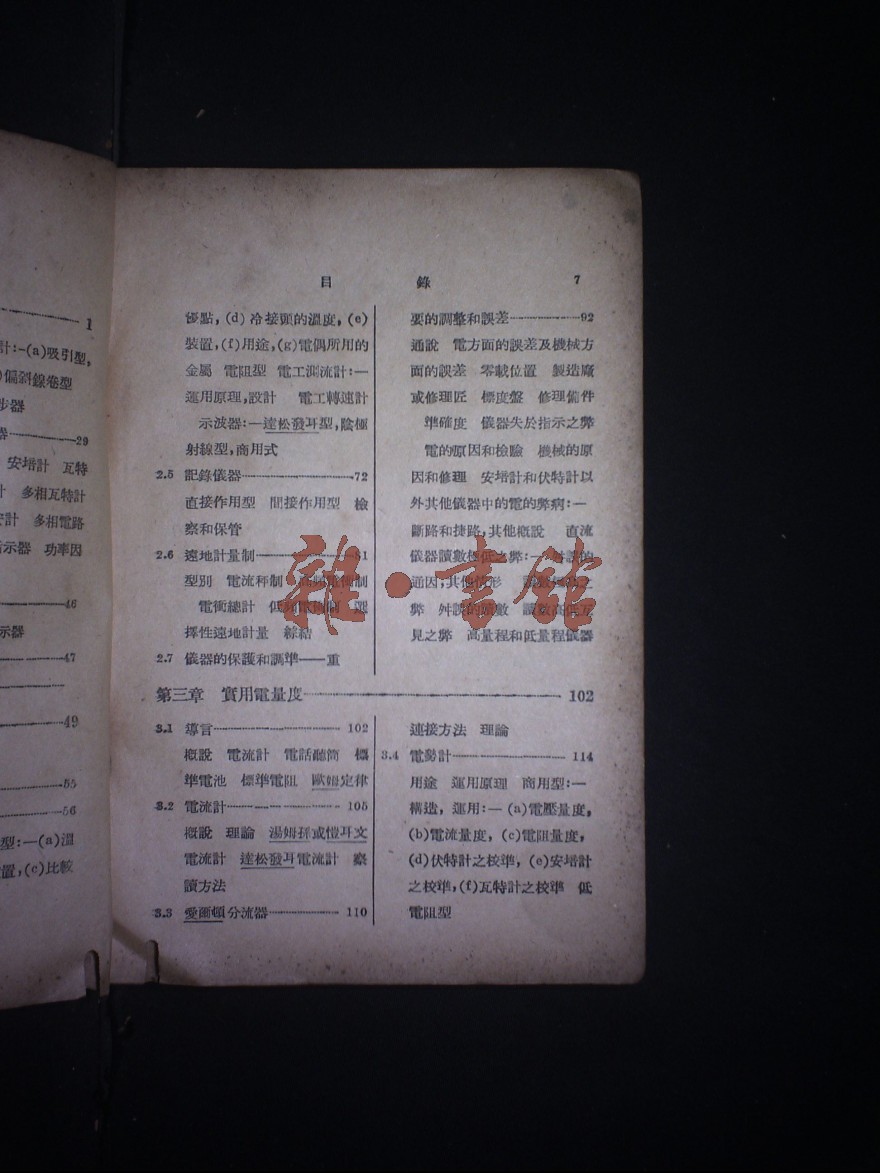 1
計:—(a)吸引型,
偏斜線卷型
步器
器 29
安培計 瓦特
計 多相瓦特計
計 多相電路
示器 功率因
46
示器
47
49
55
56
型:—(a)溫
置,(c)比較
目 錄 7
優點,(d)冷接頭的溫度,(e)
裝置,(f)用途,(g)電偶所用的
金屬 電阻型 電工測流計:—
運用原理,設計 電工轉速計
示波器:—達松發耳型,陰極
射線型,商用式
2.5 記錄儀器 72
直接作用型 間接作用型 檢
察和保管
2.6 遠地計量制 81
型別 電流秤制
電衝總計
擇性遠地計量 綜結
2.7 儀器的保護和調準——重
要的調整和誤差 92
通說 電方面的誤差及機械方
面的誤差 零載位置 製造廠
或修理匠 標度盤 修理備件
準確度 儀器失於指示之弊
電的原因和檢驗 機械的原
因和修理 安培計和伏特計以
外其他儀器中的電的弊病:—
斷路和捷路,其他概說 直流
儀器讀數極低之弊:—
通因,其他情形
弊
見之弊 高量程和低量程儀器
第三章 實用電量度 102
3.1 導言 102
概說 電流計 電話聽筒 標
準電池 標準電阻 歐姆定律
3.2 電流計 105
概說 理論 湯姆孫或愷耳文
電流計 達松發耳電流計 察
讀方法
3.3 愛爾頓分流器 110
連接方法 理論
3.4 電勢計 114
用途 運用原理 商用型:—
構造,運用:—(a)電壓量度,
(b)電流量度,(c)電阻量度,
(d)伏特計之校準,(e)安培計
之校準,(f)瓦特計之校準 低
電阻型
雜·書館